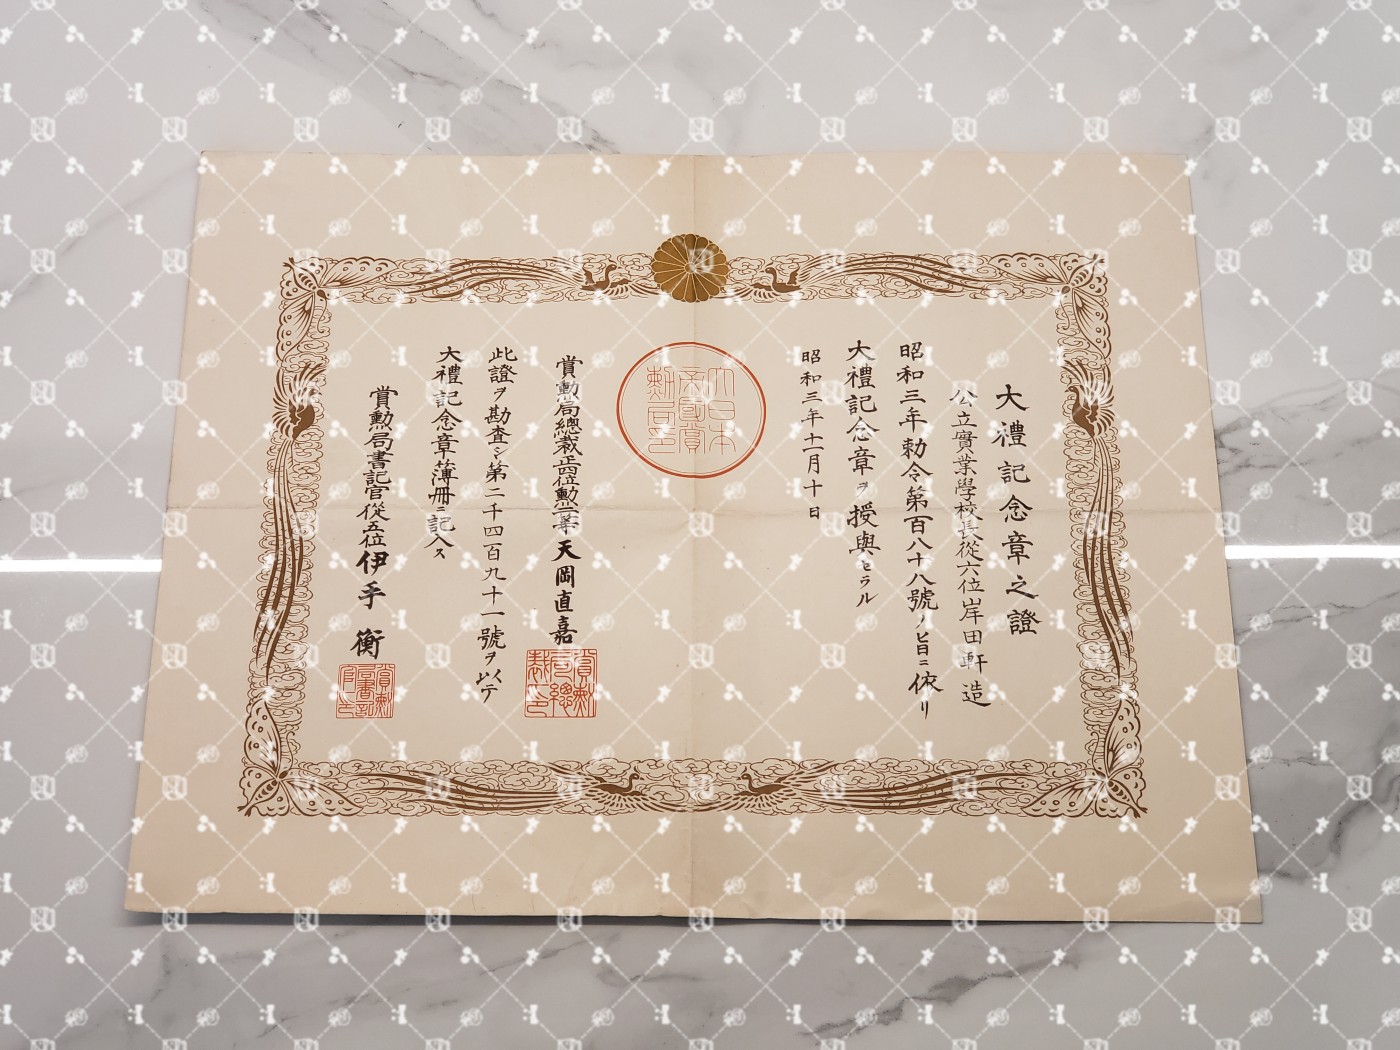 大禮記念章之證
公立實業學校長從六位岸田軒造
昭和三年勅令第百八十八號ノ旨ニ依リ
大禮記念章ヲ授與セラル
昭和三年十一月十日
大日本
帝國賞
勲局印
賞勲局總裁正四位勲一等天岡直嘉
賞勲
局總
裁印
此證ヲ勘査シ第二千四百九十一號ヲ以テ
大禮記念章簿冊ニ記入ス
賞勲局書記官從五位伊手衡
賞勲
局書記
官印